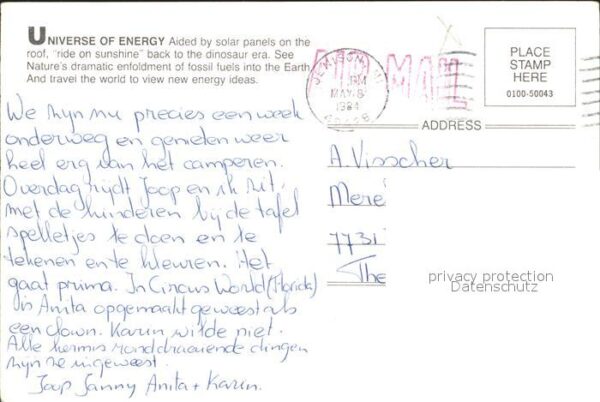 UNIVERSE OF ENERGY Aided by solar panels on the
roof, "ride on sunshine" back to the dinosaur era. See
Nature's dramatic enfoldment of fossil fuels into the Earth.
And travel the world to view new energy ideas.
We zijn nu precies een week
onderweg en genieten weer
heel erg van het camperen.
Overdag rijdt Joop en ik zit,
met de kinderen bij de tafel
spelletjes te doen en te
tekenen en te kleuren. Het
gaat prima. In Circus World (Florida)
is Anita opgemaakt geweest als
een clown. Karin wilde niet.
Alle kermis ronddraaiende dingen
zijn ze in geweest.
Joop Janny Anita + Karin.
AIR MAIL
PM
MAY 8
1984
PLACE
STAMP
HERE
0100-50043
ADDRESS
A. Visscher
Mere
7731
The
privacy protection
Datenschutz